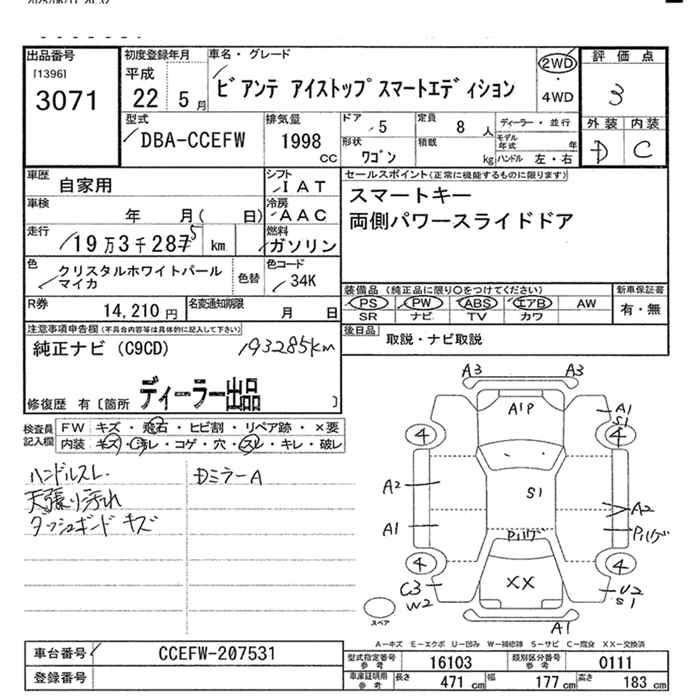 出品番号
[1396]
3071
初度登録年月
平成
22 5 月
車名・グレード
ビアンテ アイストップスマートエディション
2WD
4WD
評 価 点
3
外装 内装
D C
型式
DBA-CCEFW
排気量
1998
cc
ドア
5
定員
8 人
ディーラー・並行
モデル年式 年
形状
ワゴン
積載
kg
ハンドル 左・右
車歴
自家用
シフト
IAT
車検
年 月( 日)
冷房
AAC
走行
19万3千287 km
5
燃料
ガソリン
色
クリスタルホワイトパールマイカ
色替
色コード
34K
R券
14,210円
名変通知期限
月 日
セールスポイント(正常に機能するものに限ります)
スマートキー
両側パワースライドドア
装備品(純正品に限り○をつけてください)
PS PW ABS エアB AW
SR ナビ TV カワ
新車保証書
有・無
後日品
取説・ナビ取説
注意事項申告欄(不具合内容等は具体的に記入して下さい)
純正ナビ (C9CD)
193285km
ディーラー出品
修復歴 有〔箇所 〕
検査員記入欄
FW キズ・飛石・ヒビ割・リペア跡・×要
内装 キズ・汚レ・コゲ・穴・スレ・キレ・破レ
ハンドルスレ
天張り汚れ
ダッシュボードキズ
DミラーA
A3 A3
A1P
A1
S1
4 4
A2
S1
A2
A1
Pハゲ
Pハゲ
4 4
C3
W2
XX
U2
S1
A1
スペア
A－キズ E－エクボ U－凹み W－補修跡 S－サビ C－腐食 XX－交換済
車台番号
CCEFW-207531
登録番号
型式指定番号
参考
16103
類別区分番号
参考
0111
車庫証明用
参考
長さ 471 cm 幅 177 cm 高さ 183 cm